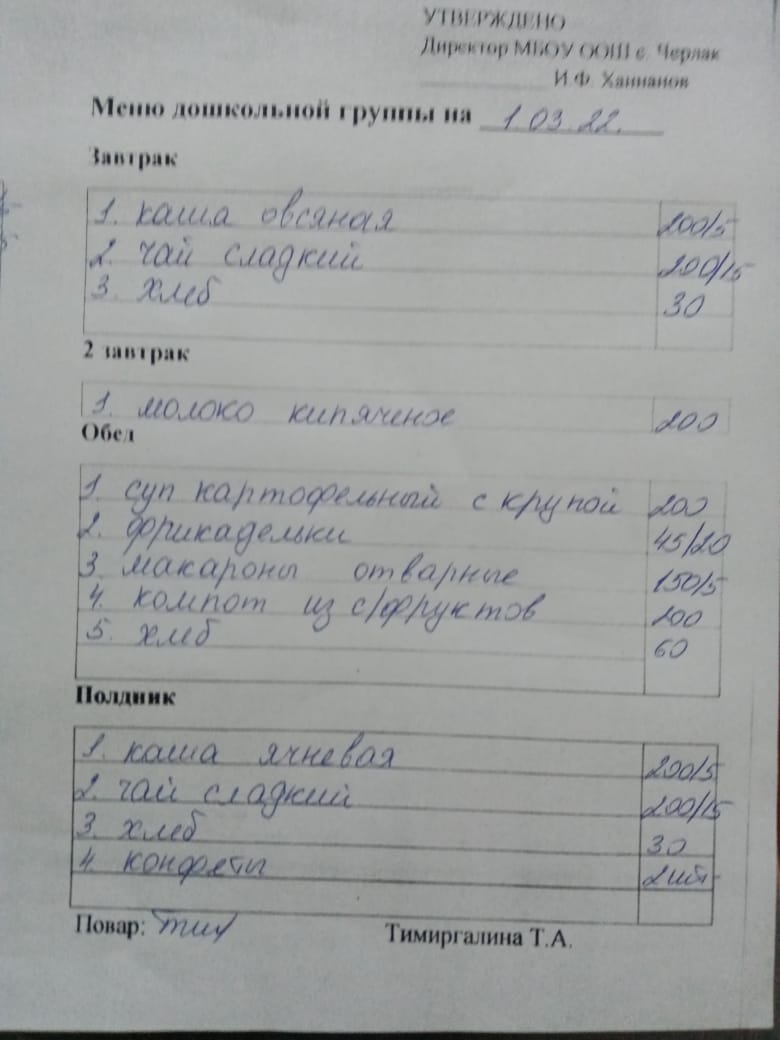 УТВЕРЖДЕНО
Директор МБОУ ООШ с. Черлак
И.Ф. Ханнанов
Меню дошкольной группы на 1.03.22.
Завтрак
1. каша овсяная 200/5
2. чай сладкий 200/15
3. хлеб 30
2 завтрак
1. молоко кипяченое 200
Обед
1. суп картофельный с крупой 200
2. фрикадельки 45/20
3. макароны отварные 150/5
4. компот из с/фруктов 200
5. хлеб 60
Полдник
1. каша ячневая 200/5
2. чай сладкий 200/15
3. хлеб 30
4. конфеты 2шт
Повар: Тимиргалина Т.А.